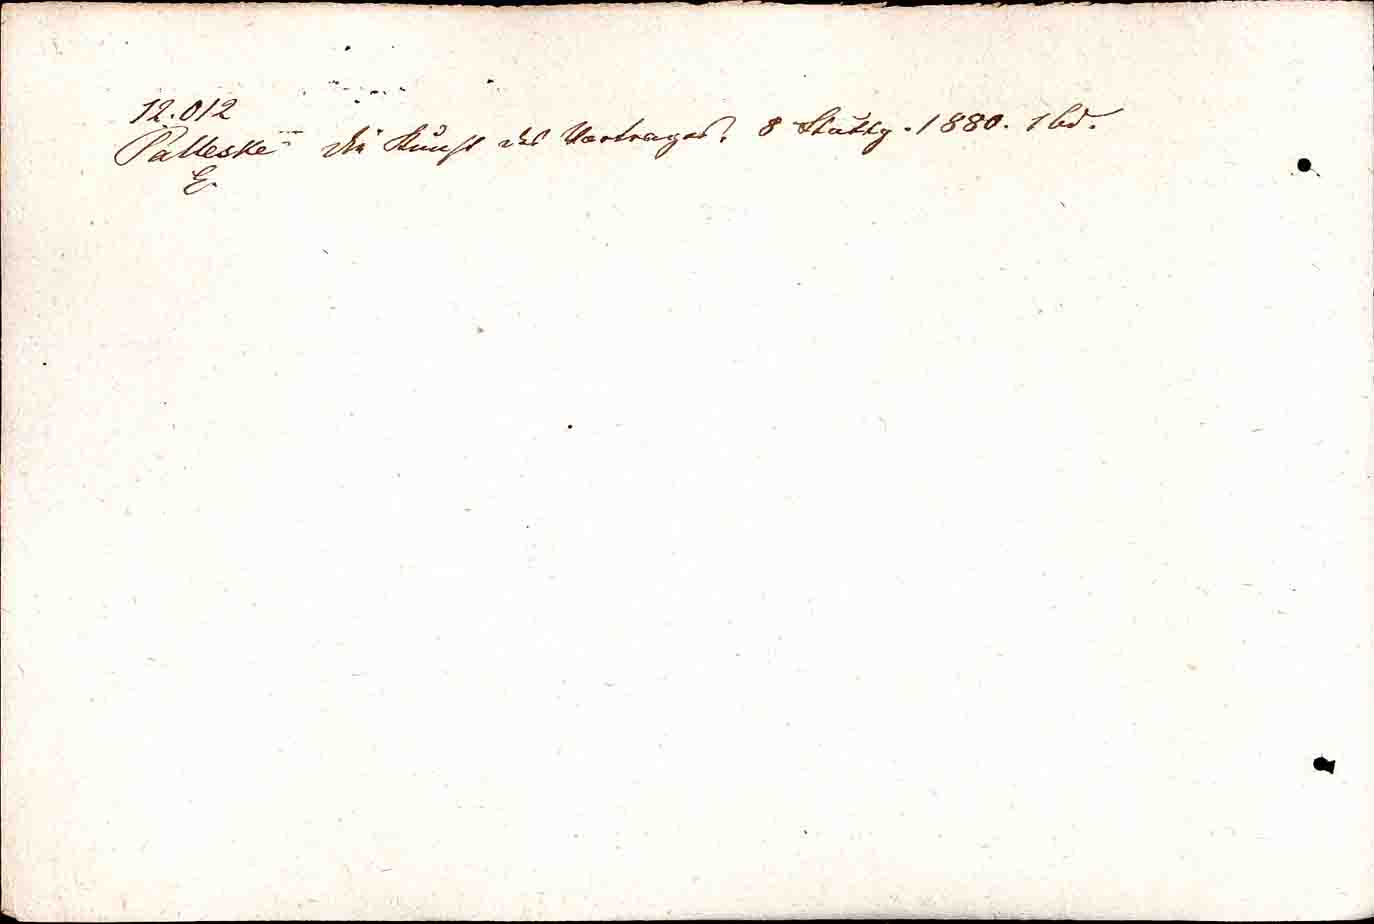 12.012
Palleske die Kunst des Vortrages. 8 Stuttg. 1880. 1 bd.
E.